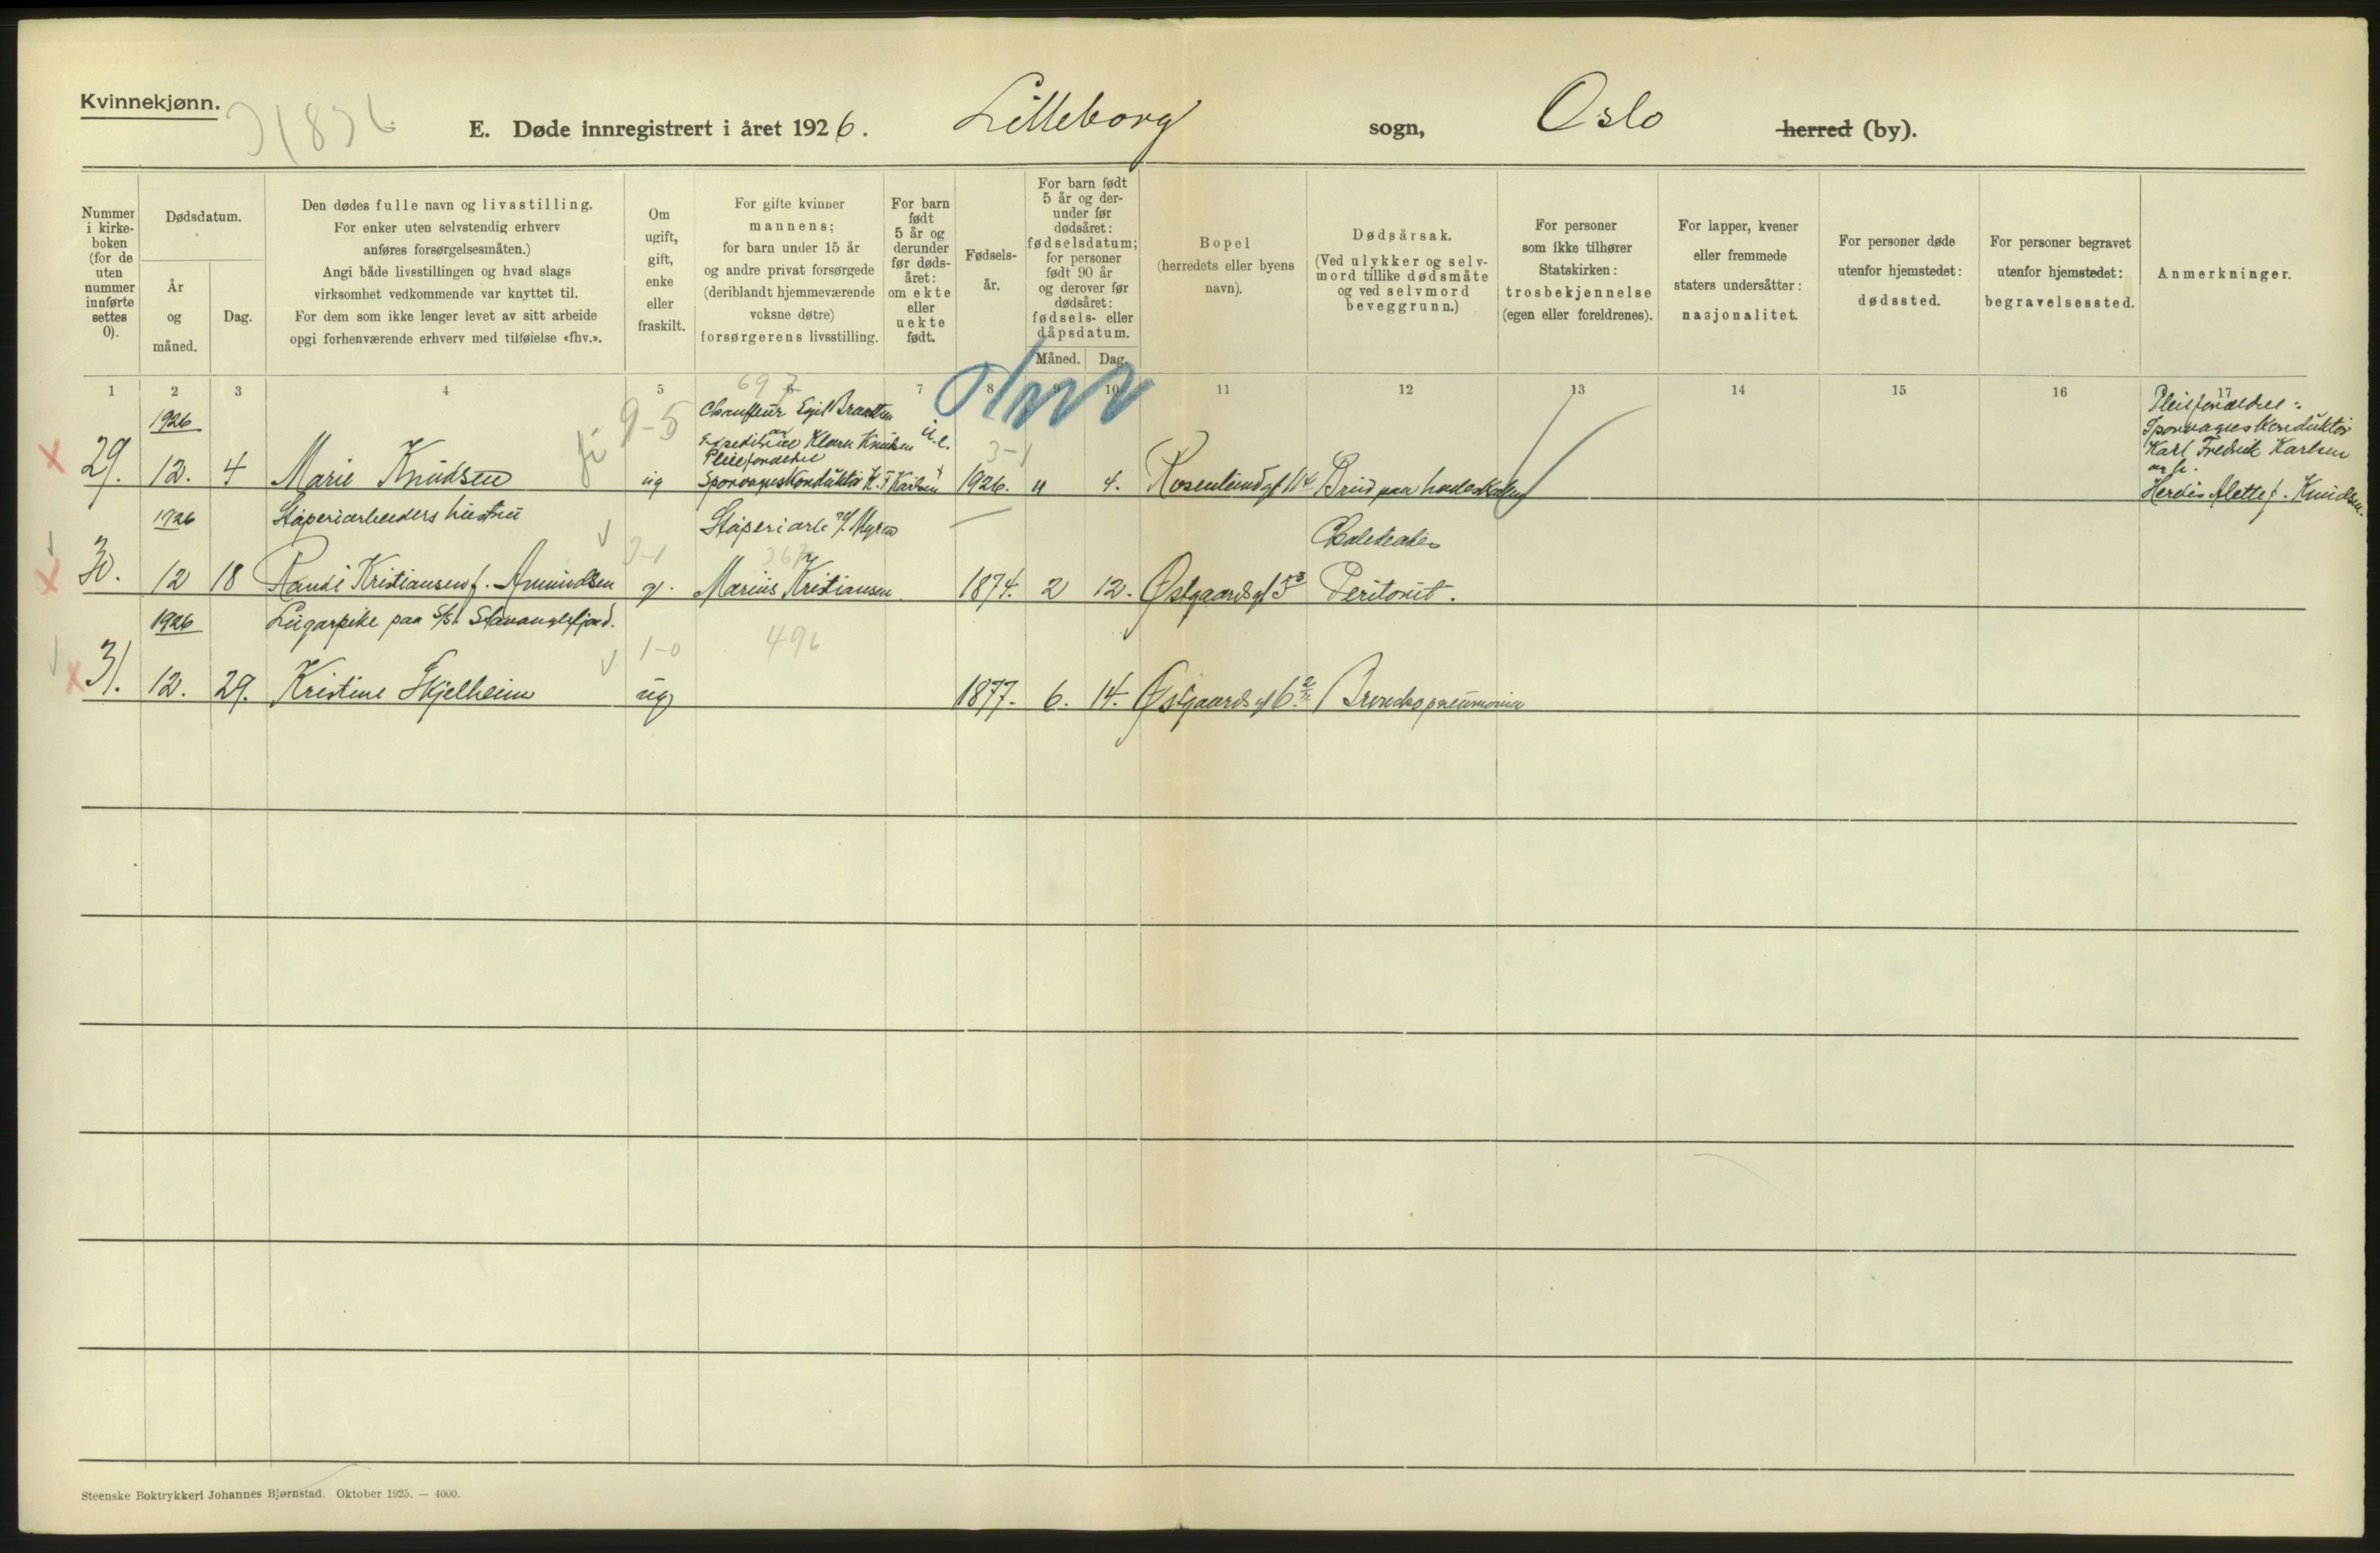 Kvinnekjønn.
E. Døde innregistrert i året 1926. Lilleborg sogn, Oslo herred (by).
Nummer i kirke-boken (for de uten nummer innførte settes 0).
Dødsdatum.
År og måned.
Dag.
Den dødes fulle navn og livsstilling.
For enker uten selvstendig erhverv
anføres forsørgelsesmåten.)
Angi både livsstillingen og hvad slags
virksomhet vedkommende var knyttet til.
For dem som ikke lenger levet av sitt arbeide
opgi forhenværende erhverv med tilføielse «fhv.».
Om ugift, gift, enke eller fraskilt.
For gifte kvinner
mannens;
for barn under 15 år
og andre privat forsørgede
(deriblandt hjemmeværende
voksne døtre)
forsørgerens livsstilling.
For barn født 5 år og derunder før døds-året: om ekte eller uekte født.
Fødsels-år.
For barn født
5 år og der-
under før
dødsåret:
fødselsdatum;
for personer
født 90 år
og derover før
dødsåret:
fødsels- eller
dåpsdatum.
Måned. Dag.
Bopel
(herredets eller byens
navn).
Dødsårsak.
(Ved ulykker og selv-
mord tillike dødsmåte
og ved selvmord
beveggrunn.)
For personer
som ikke tilhører
Statskirken:
trosbekjennelse
(egen eller foreldrenes).
For lapper, kvener
eller fremmede
staters undersåtter:
nasjonalitet.
For personer døde
utenfor hjemstedet:
dødssted.
For personer begravet
utenfor hjemstedet:
begravelsessted.
Anmerkninger.
1 2 3 4 5 6 7 8 9 10 11 12 13 14 15 16 17
1926
Chauffeur Egil Braathen
Klara Knudsen u.e.
Pleieforældre
29. 12. 4 Marie Knudsen ug Sporvognskonduktør K. F. Karlsen 1926. 4 4. Rosenlundgt 114
Pleieforældre:
Sporvognskonduktør
Karl Fredrik Karlsen
Herdis Alette f. Knudsen.
1926 Støperiarbeiders hustru Støperiarb. v/ Myren
30. 12 18 Randi Kristiansen f. Amundsen g. Marius Kristiansen 1874. 2 12. Østgaards gt 5 Peritonit.
1926 Lugarpike paa S/S Stavangerfjord.
1-0 496
31. 12. 29. Kristine Skjelheim ug 1877. 6. 14. Østgaards gt 6 Bronchopneumonia
Steenske Boktrykkeri Johannes Bjørnstad. Oktober 1925. — 4000.